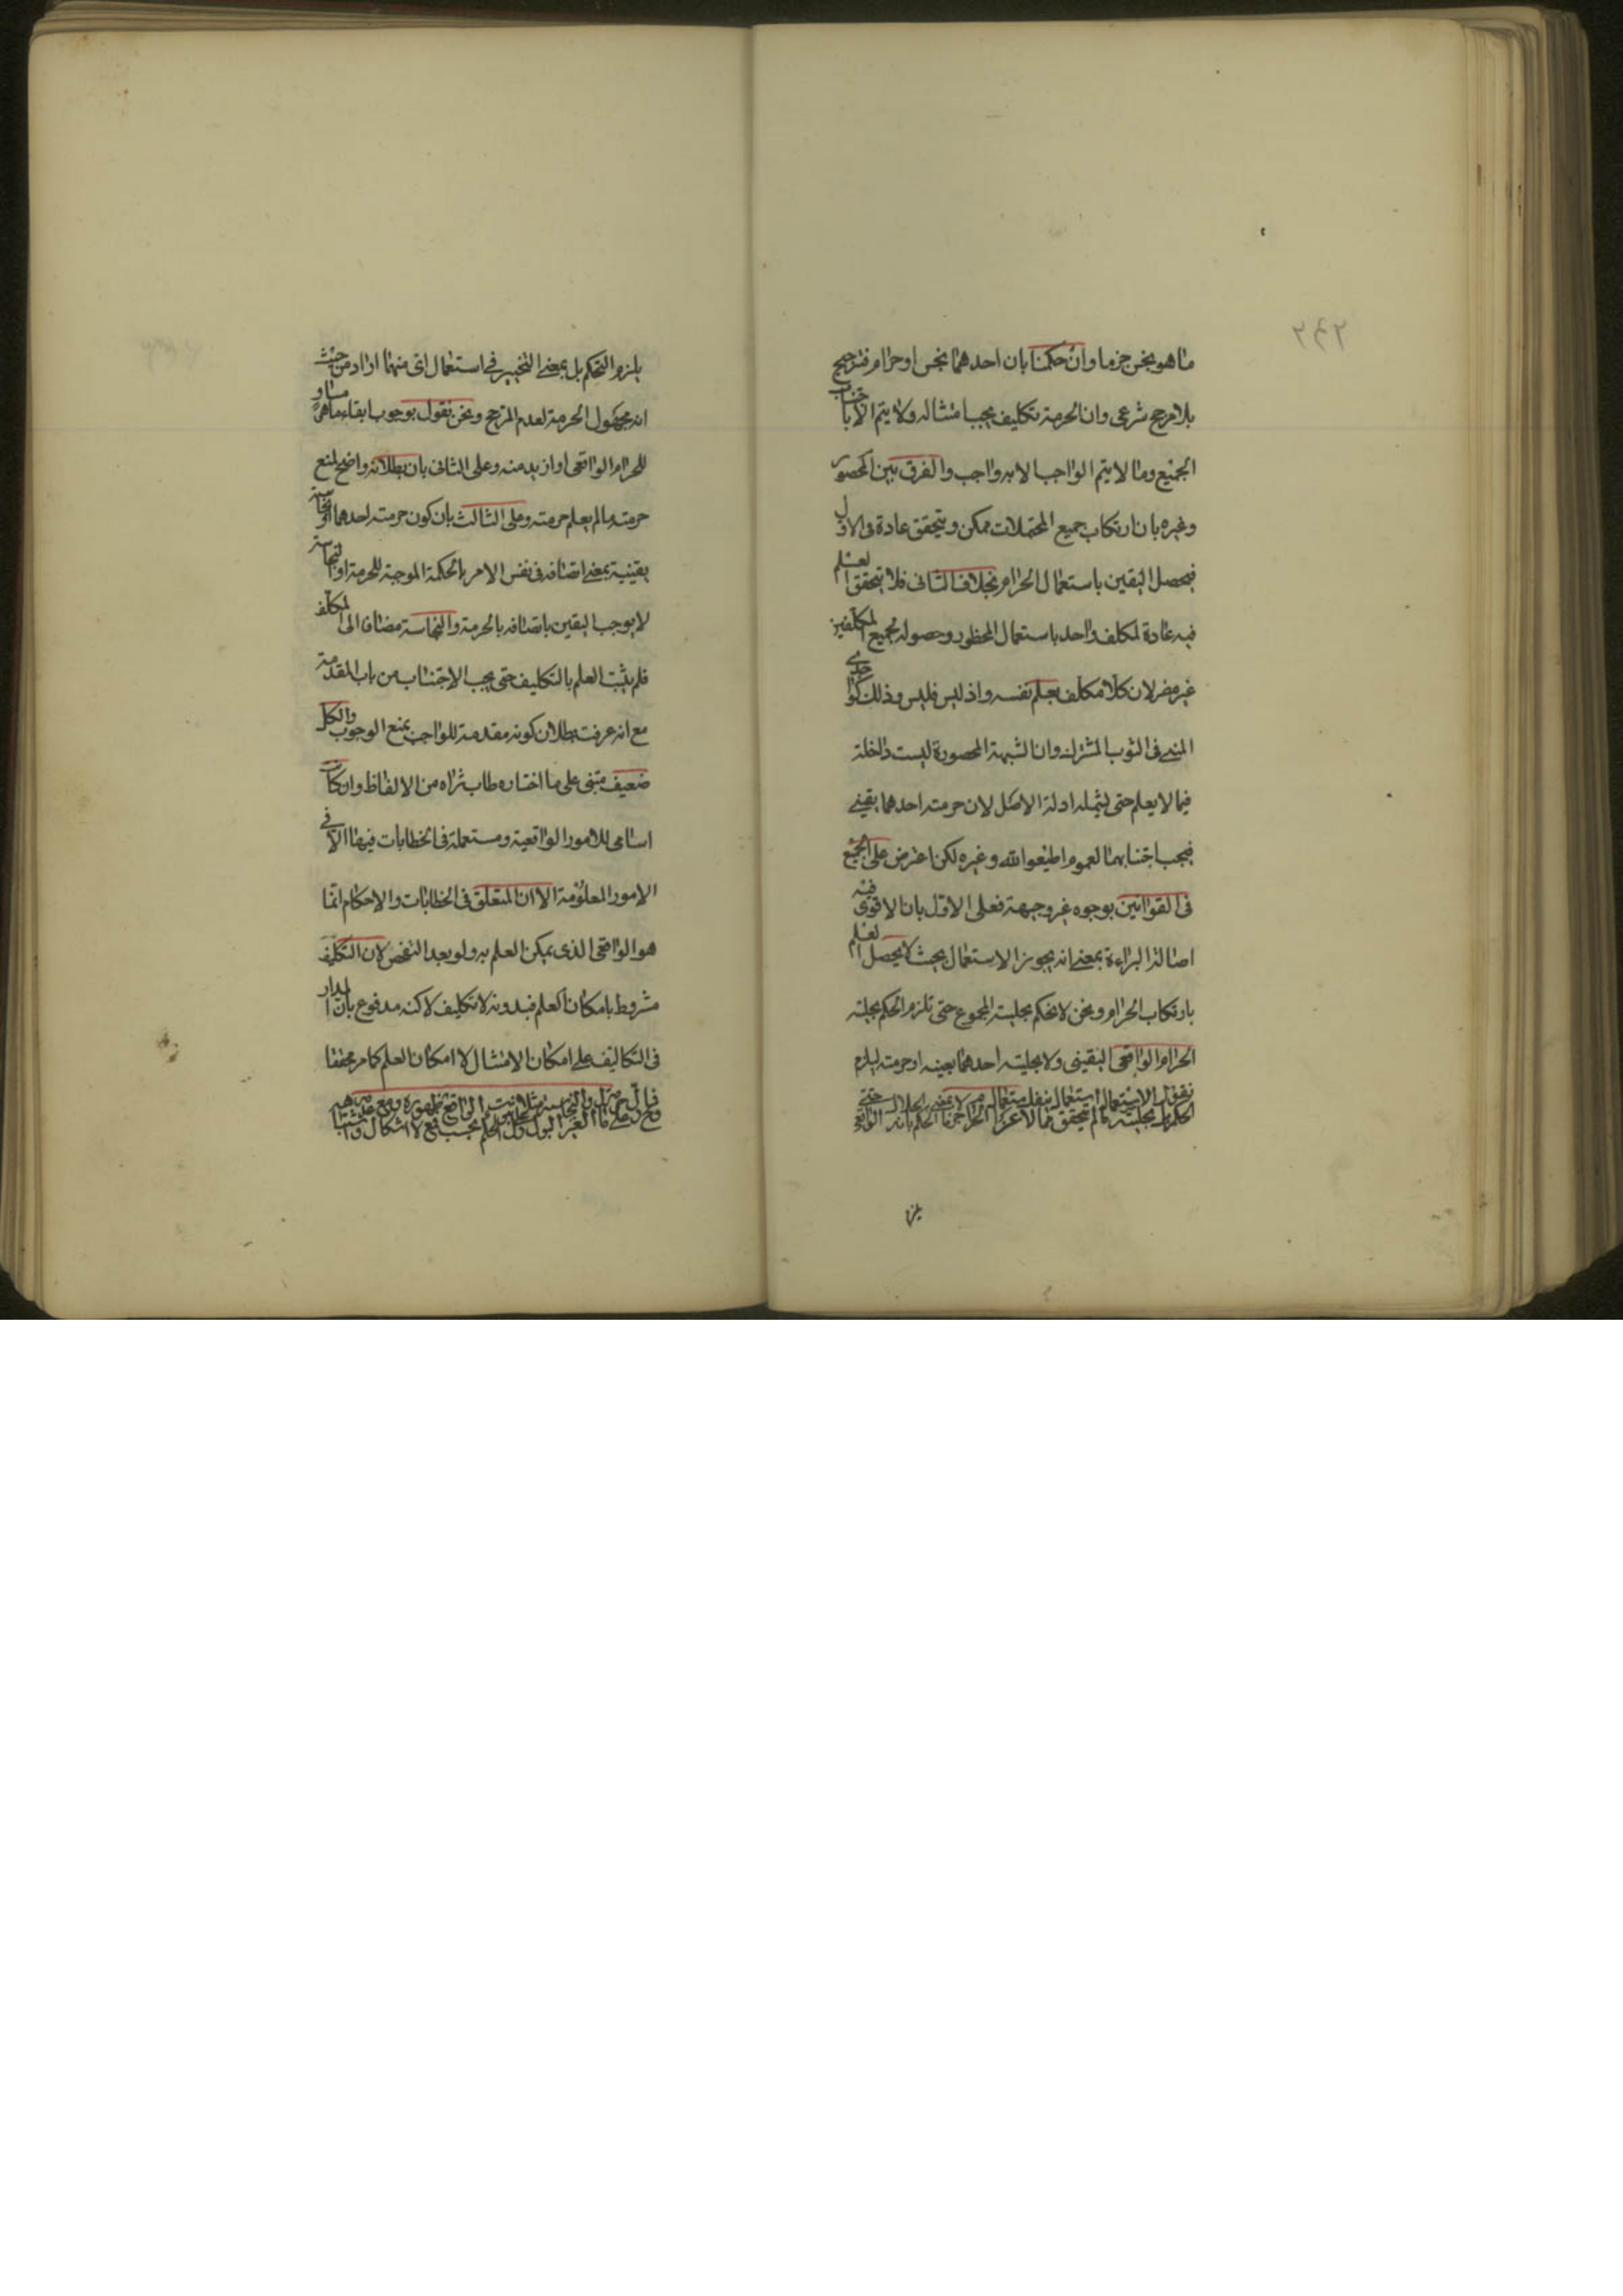 ما هو نجس جزما وان حكمنا بان احدهما نجس او حرام فترجيح
بلا مرجح شرعى وان الحرمة تكليف يجب امتثاله ولا يتم الا باجتناب
الجميع وما لا يتم الواجب الا به واجب والفرق بين المحصور
وغيره بان ارتكاب جميع المحتملات ممكن ويتحقق عادة فى الاول
فيحصل اليقين باستعمال الحرام بخلاف الثانى فلا يتحقق العلم
فيه عادة لمكلف واحد باستعمال المحظور وحصوله لجميع المكلفين
غير مضر لان كلا مكلف بعلم نفسه واذ ليس فليس وذلك كواجدى
المنى فى الثوب المشترك وان الشبهة المحصورة ليست داخلة
فيما لا يعلم حتى يشمله ادلة الاصل لان حرمة احدهما يقينى
فيجب اجتنابهما لعموم اطيعوا الله وغيره لكن اعترض على الجميع
فى القوانين بوجوه غير وجيهة فعلى الاول بان الاقوى فيه
اصالة البراءة بمعنى انه يجوز الاستعمال بحيث لا يحصل العلم
بارتكاب الحرام ونحن لا نحكم بحلية المجموع حتى تلزم الحكم بحلية
الحرام الواقعى اليقينى ولا بحلية احدهما بعينه او حرمته ليلزم
يلزم
يلزم التحكم بل بمعنى التخيير فى استعمال اى منهما اراد من حيث
انه مجهول الحرمة لعدم المرجح ونحن نقول بوجوب ابقاء ما هو مساو
للحرام الواقعى او ازيد منه وعلى الثانى بان بطلانه واضح لمنع
حرمة ما لم يعلم حرمته وعلى الثالث بان كون حرمة احدهما او نجاسته
يقينية بمعنى اتصافه فى نفس الامر بالحكمة الموجبة للحرمة او النجاسة
لا يوجب اليقين باتصافه بالحرمة والنجاسة مضافا الى المكلف
فلم يثبت العلم بالتكليف حتى يجب الاجتناب من باب المقدمة
مع انه عرفت بطلان كونه مقدمة للواجب بمنع الوجوب والكل
ضعيف مبنى على ما اختاره طاب ثراه من الالفاظ وان كان
اسامى للامور الواقعية ومستعملة فى الخطابات فيها الا فى
الامور المعلومة الا ان المتعلق فى الخطابات والاحكام انما
هو الواقعى الذى يمكن العلم به ولو بعد الفحص لان التكليف
مشروط بامكان العلم فبدونه لا تكليف لاكنه مدفوع بان المدار
فى التكاليف على امكان الامتثال لا امكان العلم كما مر محققا